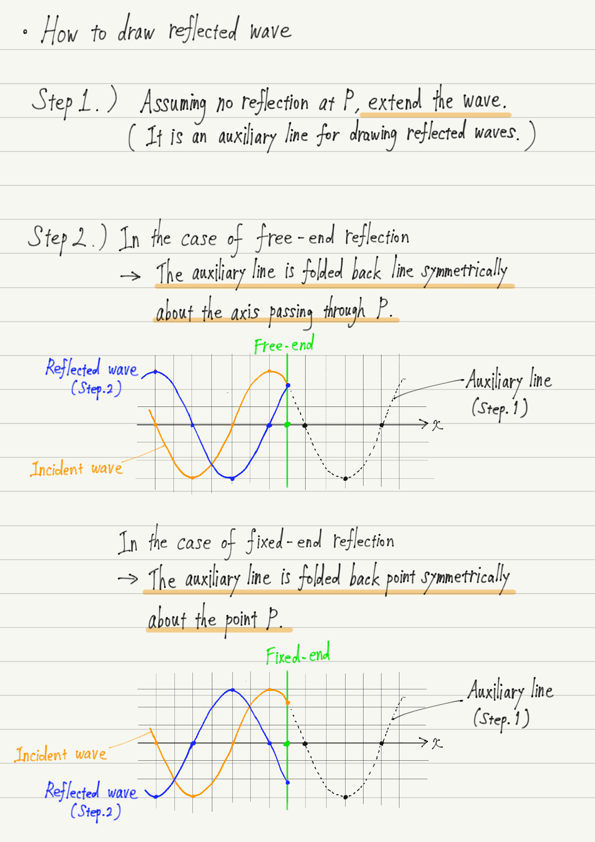 • How to draw reflected wave
Step 1.) Assuming no reflection at P, extend the wave.
( It is an auxiliary line for drawing reflected waves. )
Step 2.) In the case of free-end reflection
→ The auxiliary line is folded back line symmetrically
about the axis passing through P.
Free-end
Reflected wave
(Step.2)
Auxiliary line
(Step.1)
x
Incident wave
In the case of fixed-end reflection
→ The auxiliary line is folded back point symmetrically
about the point P.
Fixed-end
Auxiliary line
(Step.1)
x
Incident wave
Reflected wave
(Step.2)